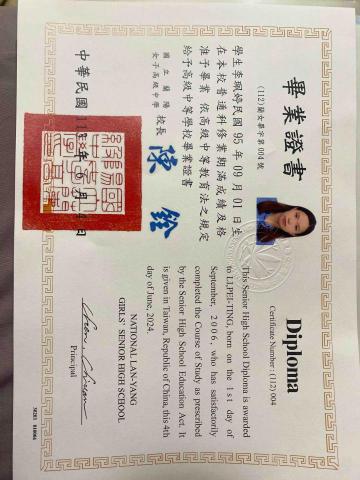 畢業證書
(112)蘭女畢字第004號
學生李珮婷民國95年09月01日生
在本校普通科修業期滿成績及格
准予畢業依高級中等教育法之規定
給予高級中等學校畢業證書
國立蘭陽
女子高級中學
校長
陳銓
中華民國 年6月 4日
Diploma
Certificate Number : (112) 004
This Senior High School Diploma is awarded
to LI,PEI-TING, born on the 1st day of
September, 2006, who has satisfactorily
completed the Course of Study as prescribed
by the Senior High School Education Act. It
is given in Taiwan, Republic of China, this 4th
day of June, 2024.
NATIONAL LAN-YANG
GIRLS' SENIOR HIGH SCHOOL
Principal